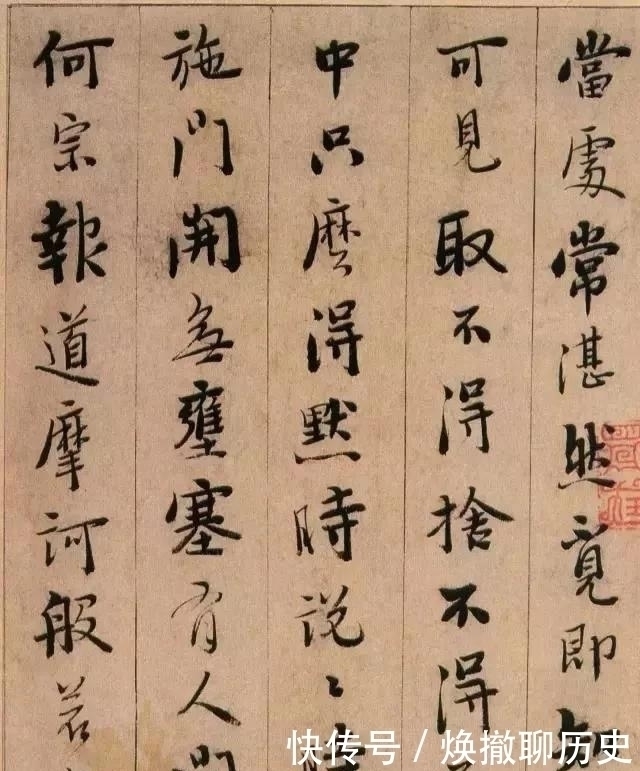 當處常湛然覓即
可見取不得捨不得
中只麼得默時説〻
施門開無壅塞有人問
何宗報道摩訶般若
快传号 / 焕撤聊历史